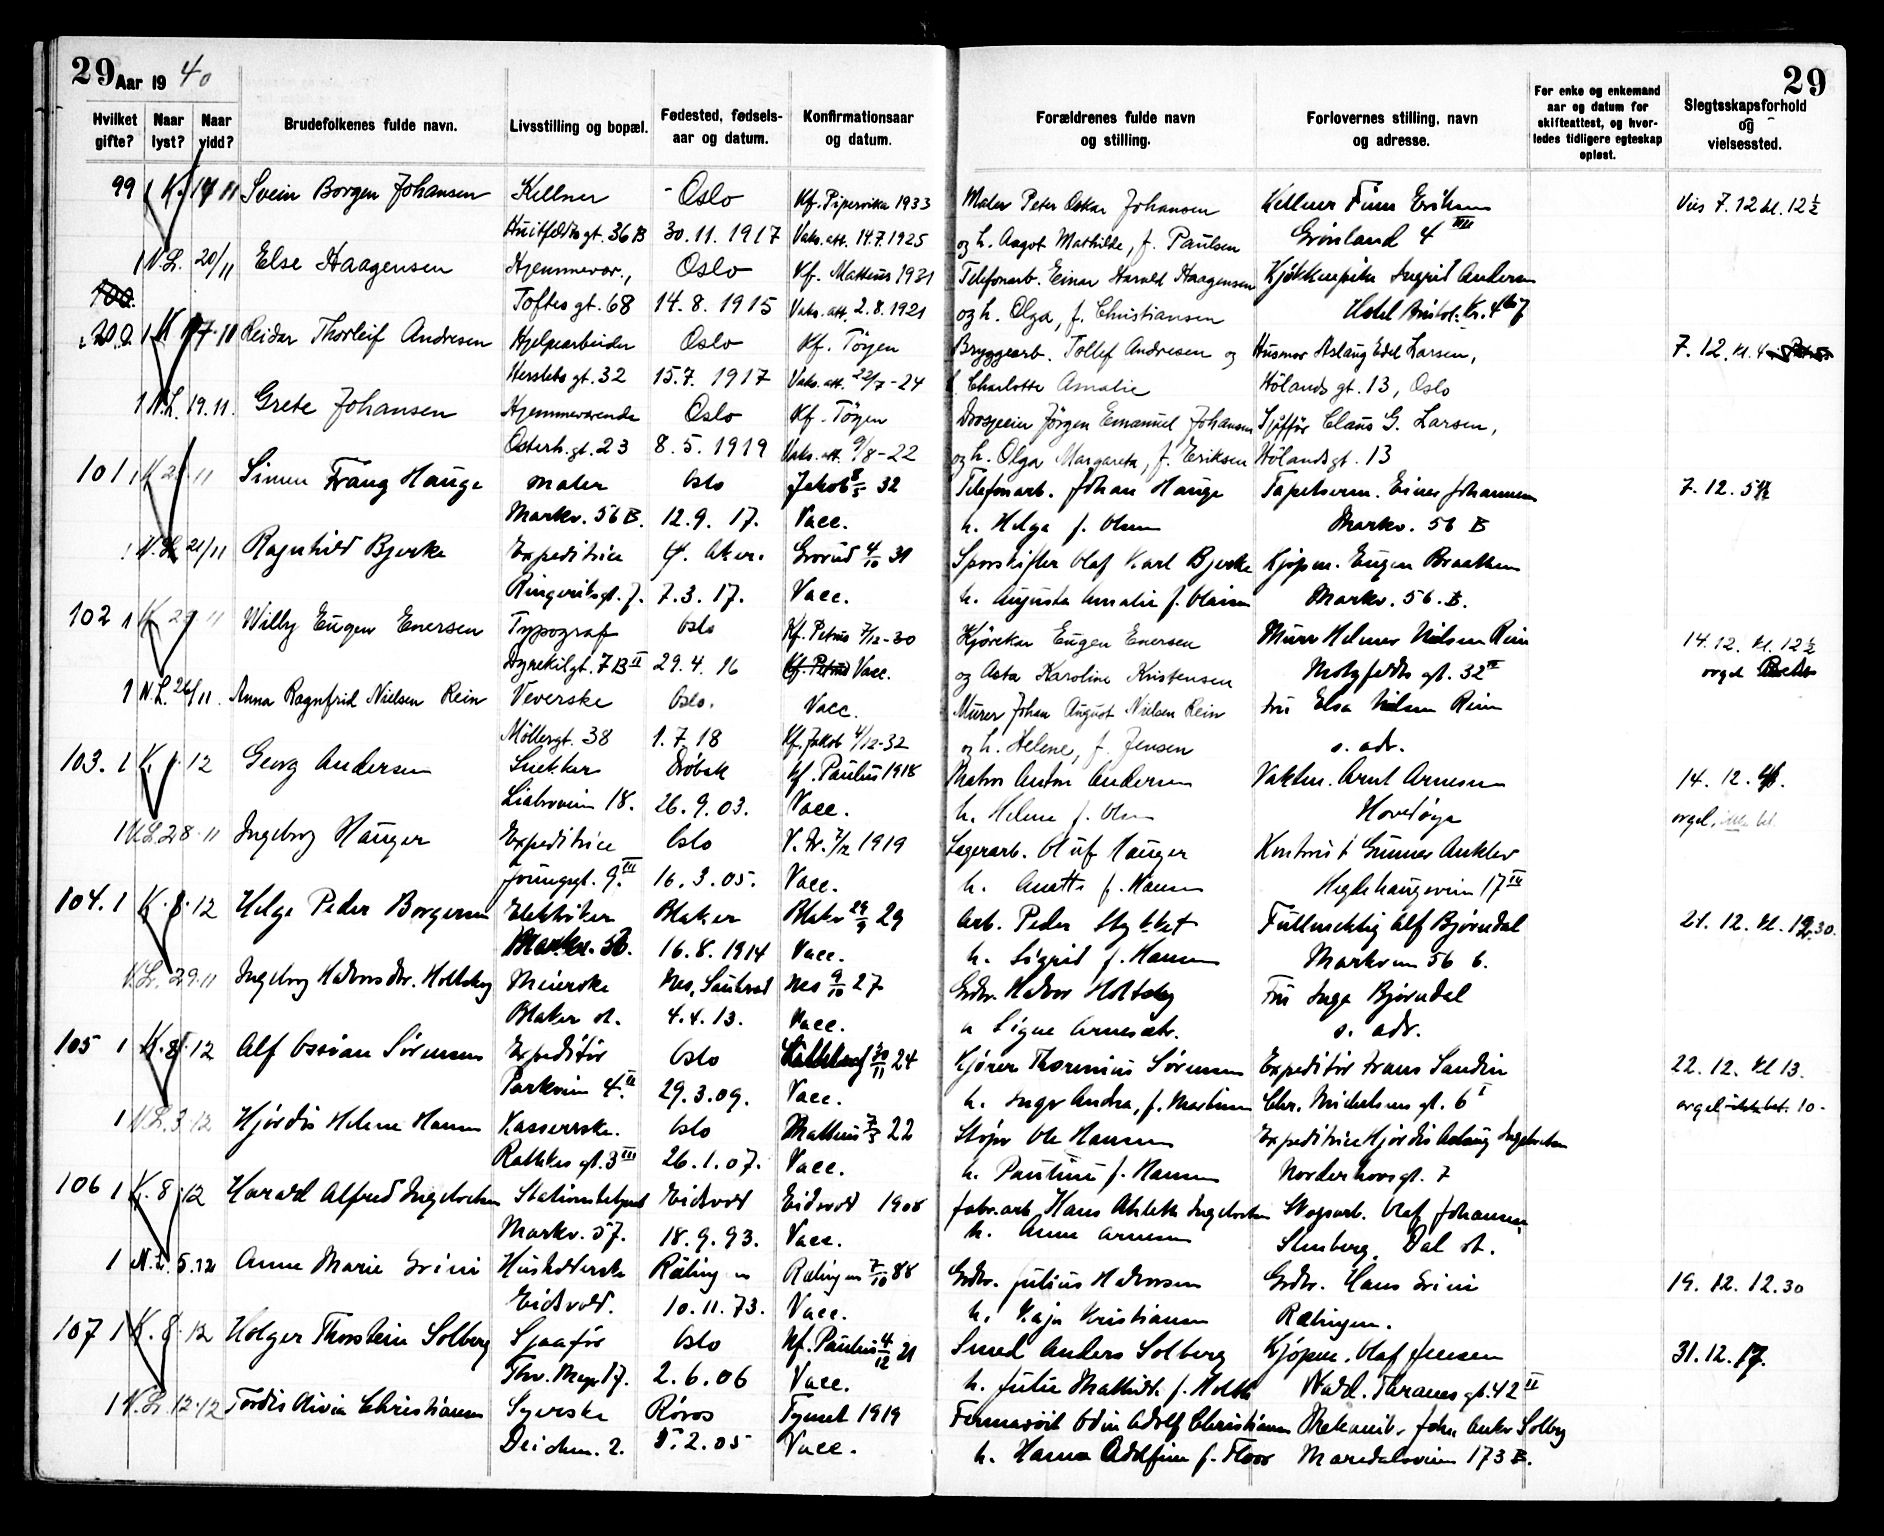 29 Aar 1940
29
Hvilket gifte? Naar lyst? Naar vidd? Brudefolkenes fulde navn. Livsstilling og bopæl. Fødested, fødsels-aar og datum. Konfirmationsaar og datum. Forældrenes fulde navn og stilling. Forlovernes stilling, navn og adresse. For enke og enkemand aar og datum for skifteattest, og hvorledes tidligere egteskap opløst. Slegtsskapsforhold og vielsessted.
99 1 K. 14 11 Svein Borgen Johansen Kellner Oslo Kf. Pipervika 1933 Maler Peter Oskar Johansen Kellner Finn Eriksen Vies 7.12 kl. 12½
Huitfeldts gt. 36 B 30.11.1917 Vaks. att. 14.7.1925 og h. Aagot Mathilde, f. Paulsen Grønland 4 III
1 N.L. 20/11 Else Haagensen Hjemmevær., Oslo Kf. Matteus 1931 Telefonarb. Einar Harald Haagensen Kjøkkenpike Ingrid Andersen
100. Toftes gt. 68 14.8.1915 Vaks. att. 2.8.1921 og h. Olga, f. Christiansen Hotel Bristol
100. 1 K Reidar Thorleif Andresen Hjelpearbeider Oslo Kf. Tøyen Bryggearb. Tollef Andresen og Husmor Aslaug Edel Larsen, 7.12. kl. 4
Herslebs gt. 32 15.7.1917 Vaks. att. 22/7-24 Charlotte Amalie Hølands gt. 13, Oslo
1 N.L. 19.11. Grete Johansen Hjemmeværende Oslo Kf. Tøyen Drosjeeier Jørgen Emanuel Johansen Sjåffør Claus G. Larsen,
Osterh. gt. 23 8.5.1919 Vaks. att. 9/8-22 og h. Olga Margareta, f. Eriksen Hølandsgt. 13
101 1 K 11 Simen Franz Hauge Maler Oslo Jakob 8/5 32 Telefonarb. Johan Hauge Tapetserm. Einar Johannesen 7.12. 5½
Markv. 56 B. 12.9.17. Vacc. h. Helga f. Olsen Markv. 56 B
1 N.L. 21/11 Ragnhild Bjerke Expeditrice Ø. Aker. Grorud 4/10 31 Sporskifter Olaf Karl Bjerke Kjøpm. Eugen Braathen
Ringeriksgt. 7. 7.3.17. Vacc. h. Augusta Amalie f. Olaisen Markv. 56. B.
102 1 K 29 11 Willy Eugen Enersen Typograf Oslo Kf. Petrus 7/12-30 Kjørekar Eugen Enersen Murer Helmer Nielsen Rein 14.12. kl. 12½
Dynekilgt. 7 B II 29.4.16 Kf. Petrus Vacc. og Asta Karoline Kristensen Motzfeldts gt. 32 orgel
1 N.L. 26/11. Anna Ragnfrid Nielsen Rein Veverske Oslo. Vacc. Murer Johan August Nielsen Rein Fru Elsa Nilsen Rein
Møllergt. 38 1.7.18 Kf. Jakob 4/12-32 og h. Helene, f. Jensen s. adr.
103. 1 K. 1.12 Georg Andersen Snekker Drøbak Kf. Paulus 1918 Matros Anton Andersen Vaktm. Arnt Arnesen 14.12.
Liabroveien 18. 26.9.03. Vacc. h. Helene f. Olsen Hovedøya orgel, ikke bet.
1 N.L. 28.11 Ingeborg Hauger Expeditrice Oslo V. Fr. 7/12 1919 Lagerarb. Oluf Hauger Kontorist Gunnar Anklev
Youngsgt. 9. III 16.3.05. Vacc. h. Anette f. Hansen Hegdehaugsveien 17 IV
104. 1 K. 8.12 Helge Peder Borgersen Elektriker Blaker Blaker 29/9 29 Arb. Peder Stykket Fullmektig Alf Bjørndal 21.12. kl. 12.30.
Markv. 56. 16.8.1914 Vacc. h. Sigrid f. Hansen Markveien 56 b.
N.L. 29.11 Ingeborg Halvorsdtr. Holtsbøy Meierske Nes, Sauherad Nes 9/10 27 Grdbr. Halvor Holtsbøy Fru Inga Bjørndal
Blaker st. 4.4.13. Vacc. h Signe Arnesdtr. s. adr.
105 1 K. 8.12 Alf Ossian Sørensen Expeditør Oslo 30/11 24 Kjører Thorenius Sørensen Expeditør Frans Sandin 22.12. kl 13.
Parkveien 4. II 29.3.09. Vacc. h. Inga Andrea, f. Martinsen Chr. Michelsens gt. 6 I orgel ikke bet. 10-
1 N.L. 3.12 Hjørdis Helene Hansen Kassererske. Oslo Matteus 7/5 22 Støper Ole Hansen Expeditrice Hjørdis Aslaug Ingebretsen
Rathkes gt. 3 III 26.1.07. Vacc. h. Pauline f. Hansen Norderhovsgt. 7
106 1 K. 8.12 Harald Alfred Ingebretsen Stationsbetjent Eidsvold Eidsvold 1908 Fabr.arb. Hans Ingebretsen Skogsarb. Olaf Johansen,
Markv. 57. 18.9.93. Vacc. h. Anna Arnesen Stenberg, Dal st.
1 N.L. 5.12 Anna Marie Grini Husholderske Rælingen Rælingen 7/10 88 Grdbr. Julius Halvorsen Grdbr. Hans Grini 19.12. 12.30
Eidsvold. 10.11.73. Vacc. h. Kaja Kristiansen Rælingen.
107 1 K. 8.12 Holger Thorstein Solberg Sjaafør Oslo Kf. Paulus 4/12 21 Smed Anders Solberg Kjøpm. Olaf Jensen 31.12.17.
Thv. Meyr 17. 2.6.06 Vacc. h. Julie Mathilde f. Holth Wald. Thranes gt. 42 II
1 N.L. 12.12 Tordis Olivia Christiansen Syerske Røros Tynset 1919 Odin Adolf Christiansen Mekanik. John Anker Solberg
Deichm. 2. 5.2.05 Vacc. h. Hanna Adolfine f. Floor Maridalsveien 173 B.